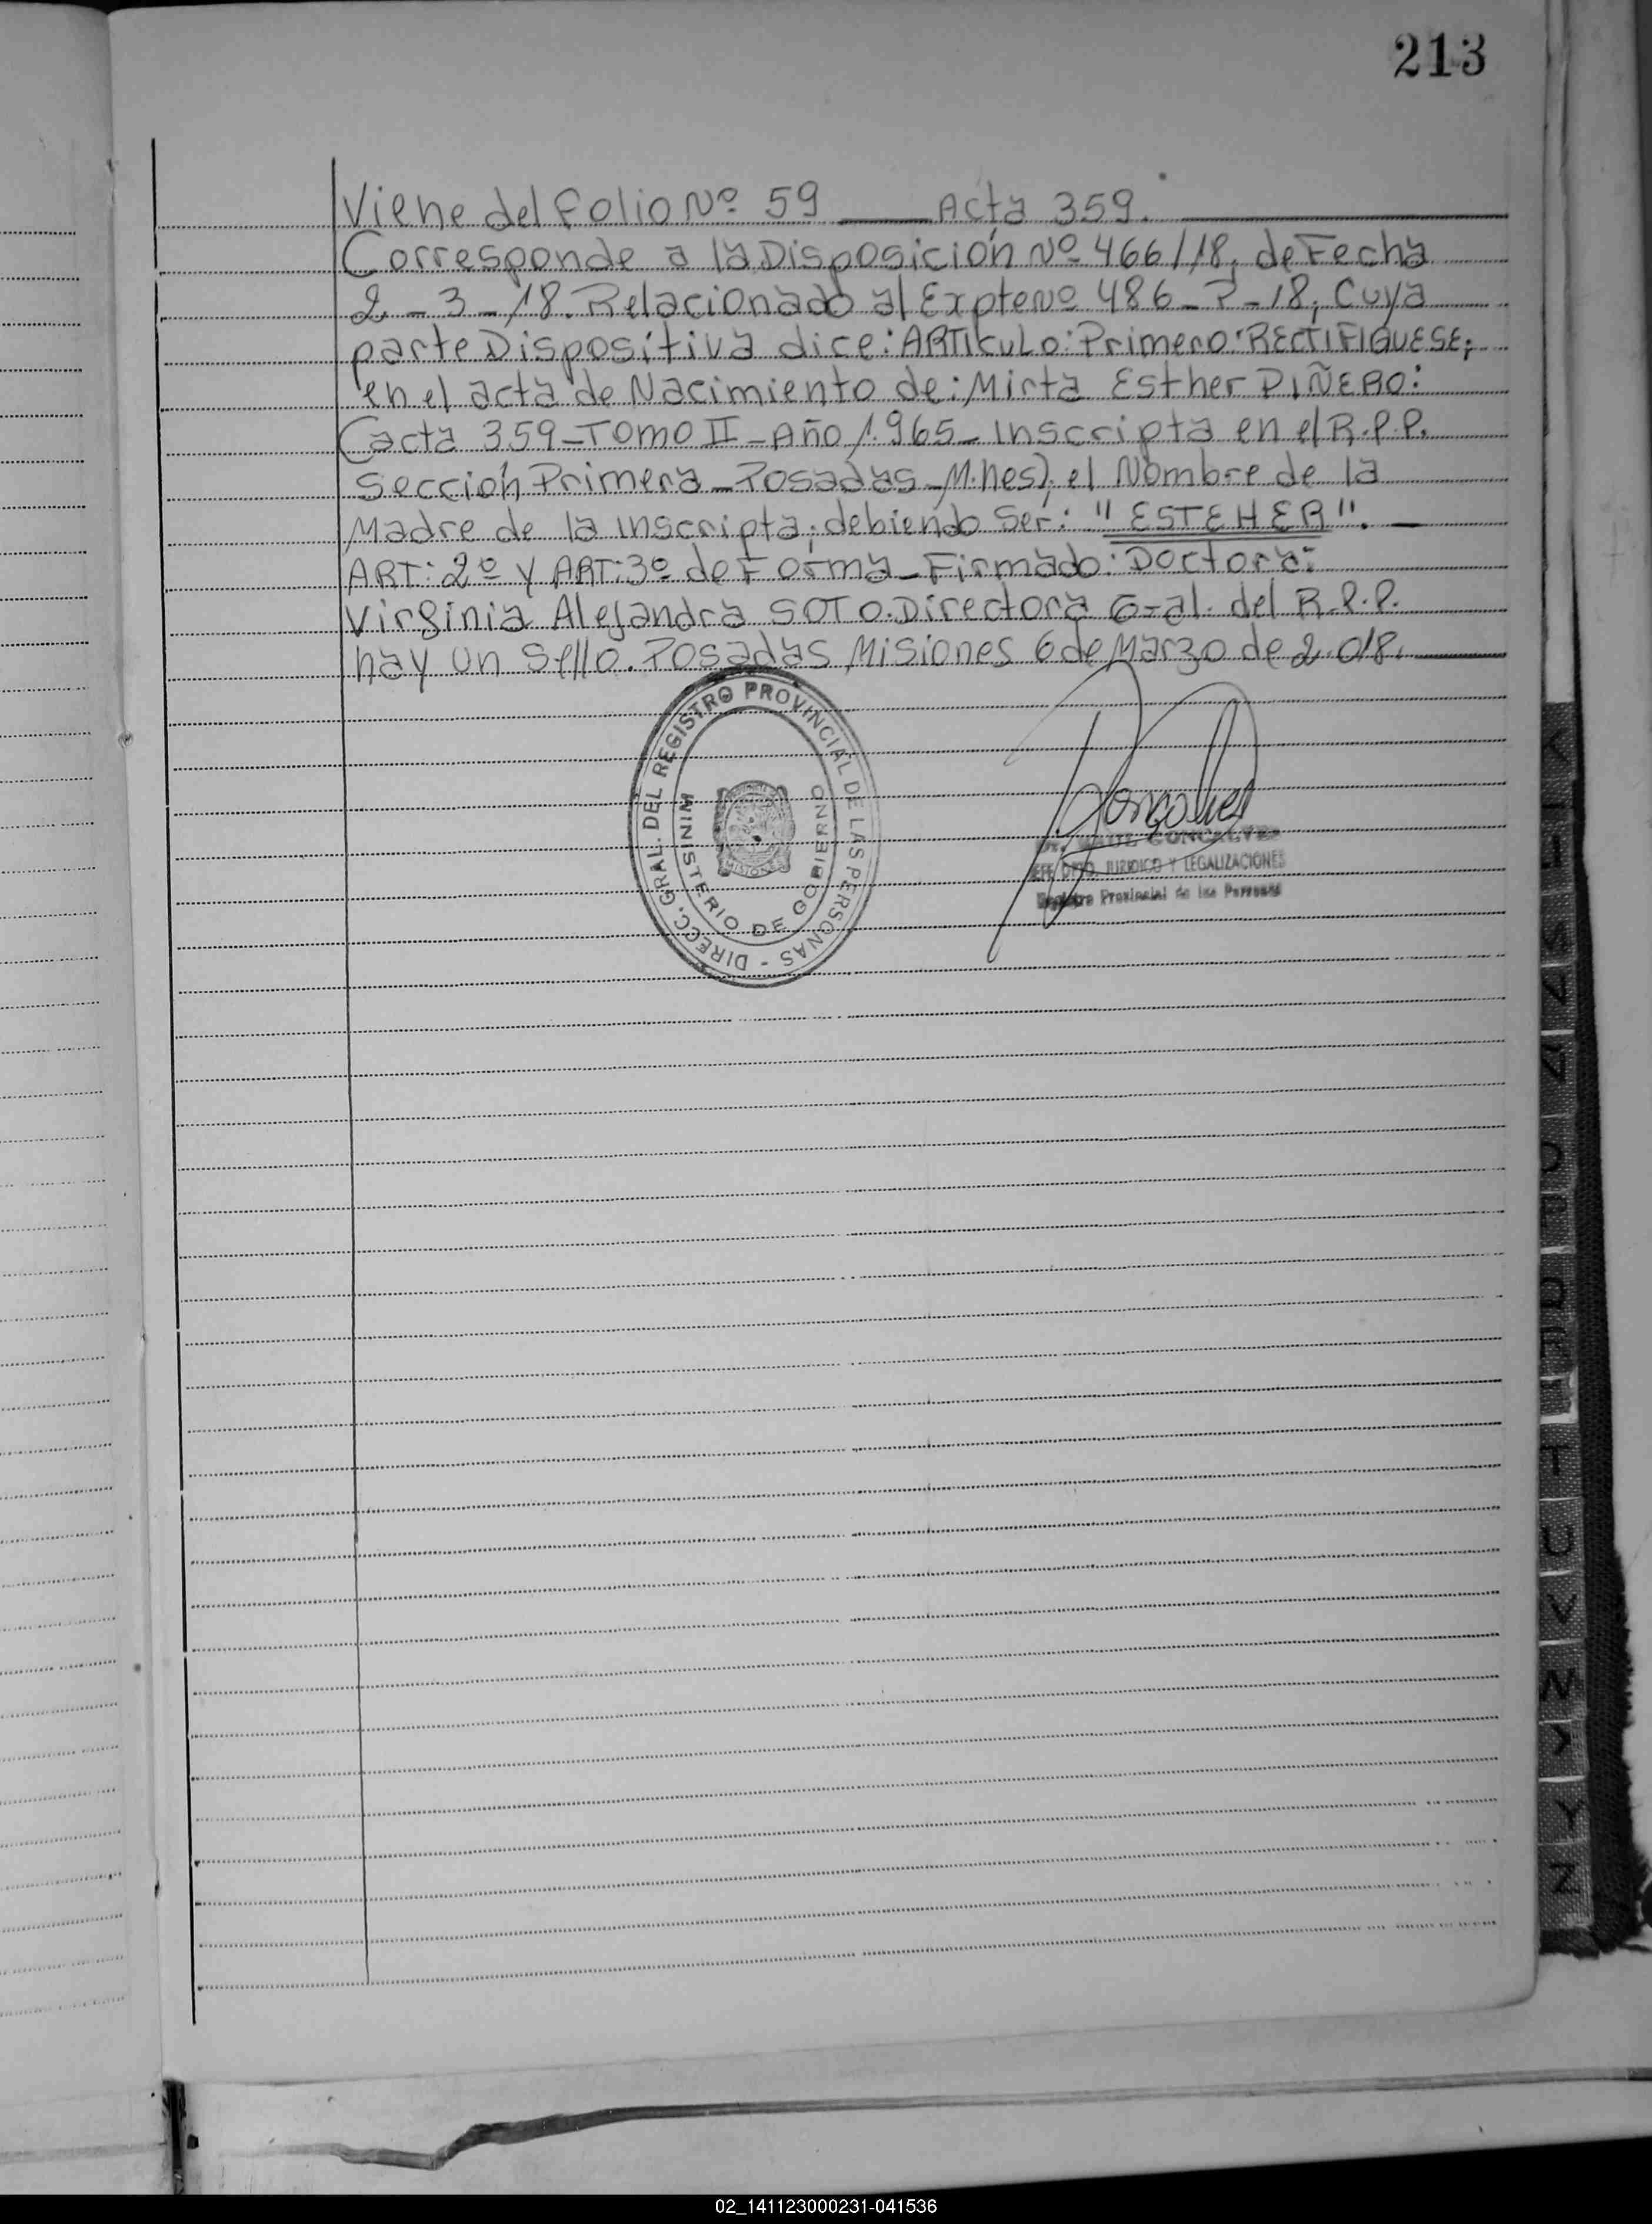 213
Viene del Folio Nº 59 ____ Acta 359.
Corresponde a la Disposición Nº 466/18, de Fecha
2-3-18. Relacionado al Expte Nº 486-P-18, Cuya
parte Dispositiva dice: ARTIcuLo: Primero: RECTIFIQUESE;
en el acta de Nacimiento de: Mirta Esther PIÑERO:
(acta 359-Tomo II-Año 1.965- Inscripta en el R.P.P.
Sección Primera-Posadas-M.nes), el Nombre de la
Madre de la Inscripta; debiendo Ser: "ESTEHER". —
ART: 2º Y ART: 3º de Forma-Firmado: Doctora:
Virginia Alejandra SOTO. Directora G-al. del R.P.P.
hay un Sello. Posadas Misiones 6 de Marzo de 2.018.
DIRECC. GRAL. DEL REGISTRO PROVINCIAL DE LAS PERSONAS -
MINISTERIO DE GOBIERNO
MISIONES
GONCALVES
JEFE DPTO. JURIDICO Y LEGALIZACIONES
Registro Provincial de las Personas
T
U
V
W
Y
Z
02_141123000231-041536